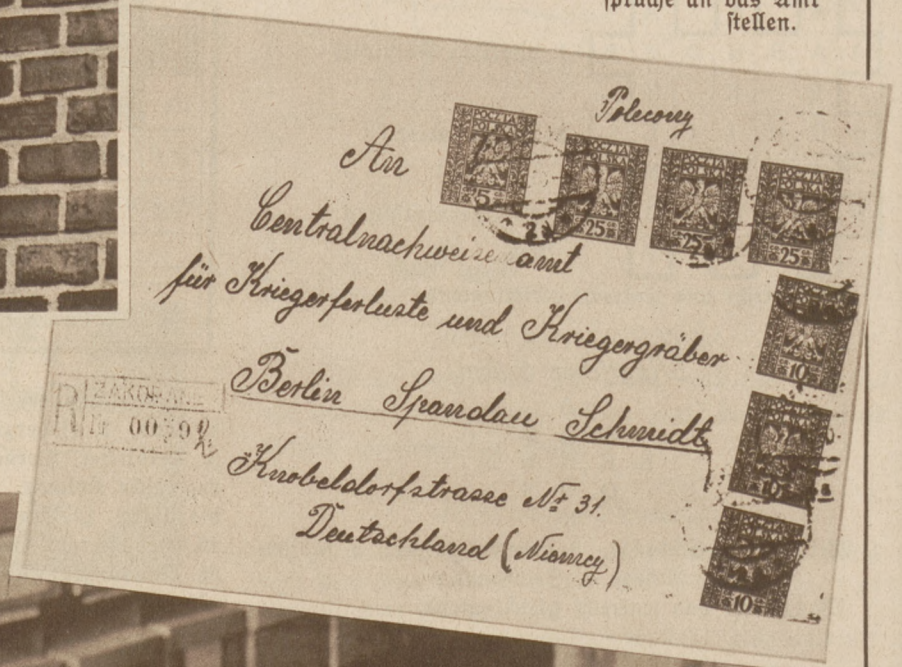 sprüche an das Amt
stellen.
Polecony
An
Centralnachweiseamt
für Kriegerferluste und Kriegergräber
Berlin Spandau Schmidt
Knobeldorfstrasse Nr 31.
Deutschland (Niemcy)
R ZAKOPANE
Nr
POCZTA POLSKA 5
POCZTA POLSKA 25
POCZTA POLSKA 25
POCZTA POLSKA 25
10
10
10